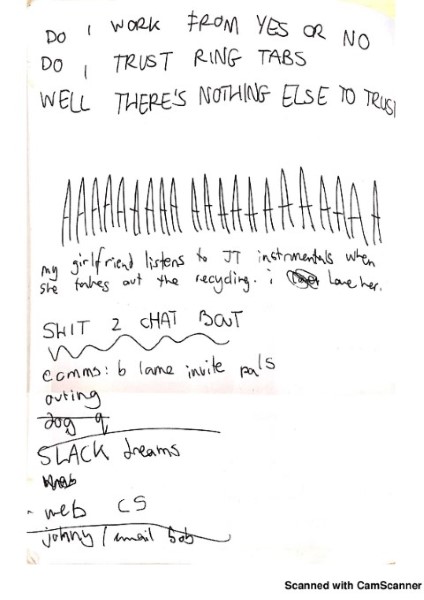 DO I WORK FROM YES OR NO
DO I TRUST RING TABS
WELL THERE'S NOTHING ELSE TO TRUST
AAAAAAAAA AAAAAAAAAAAAA
my girlfriend listens to JT instrmentals when
she takes out the recycling. i love her.
SHIT 2 CHAT BOUT
comms: b lame invite pals
outing
dog q
SLACK dreams
- web CS
johnny / email bob
Scanned with CamScanner